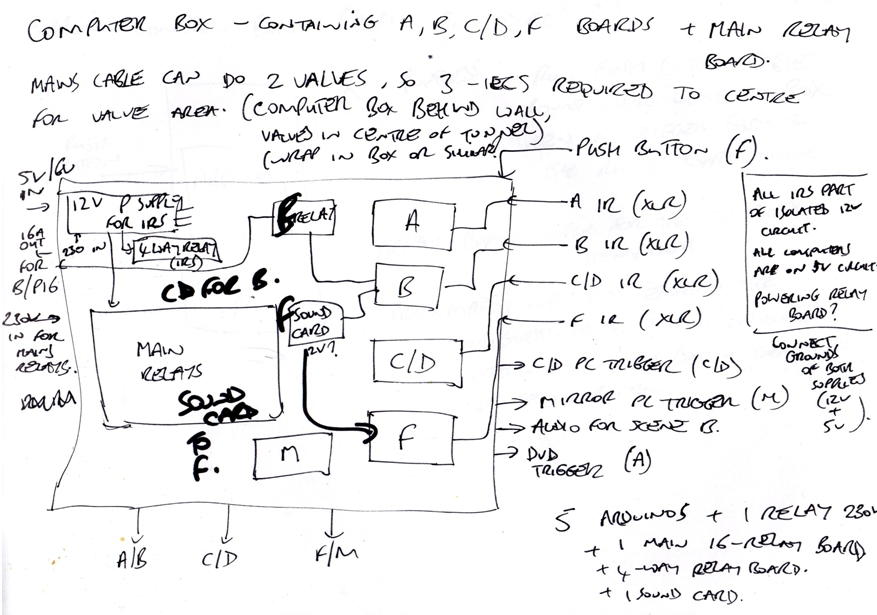 COMPUTER BOX - CONTAINING A, B, C/D, F BOARDS + MAIN RELAY
BOARD.
MAINS CABLE CAN DO 2 VALVES, SO 3 -IECS REQUIRED TO CENTRE
FOR VALVE AREA. (COMPUTER BOX BEHIND WALL,
VALVES IN CENTRE OF TUNNEL)
(WRAP IN BOX OR SIMILAR)
PUSH BUTTON (F).
5V/6V
IN
12V P SUPPLY
FOR IRS
230 IN
4 WAY RELAY
(IRS)
16A
OUT
FOR
B/P16
B RELAY
CD FOR B.
A
B
C/D
F
M
F SOUND
CARD
12V?
230V
IN FOR
MAINS
RELAYS.
MAIN
RELAYS
SOUND
CARD
TO
F.
A IR (XLR)
B IR (XLR)
C/D IR (XLR)
F IR (XLR)
C/D PC TRIGGER (C/D)
MIRROR PC TRIGGER (M)
AUDIO FOR SCENE B.
DVD
TRIGGER (A)
ALL IRS PART
OF ISOLATED 12V
CIRCUIT.
ALL COMPUTERS
ARE ON 5V CIRCUIT
POWERING RELAY
BOARD?
CONNECT
GROUNDS
OF BOTH
SUPPLIES
(12V
+
5V).
A/B
C/D
F/M
5 ARDUINOS + 1 RELAY 230V
+ 1 MAIN 16-RELAY BOARD
+ 4-WAY RELAY BOARD.
+ 1 SOUND CARD.